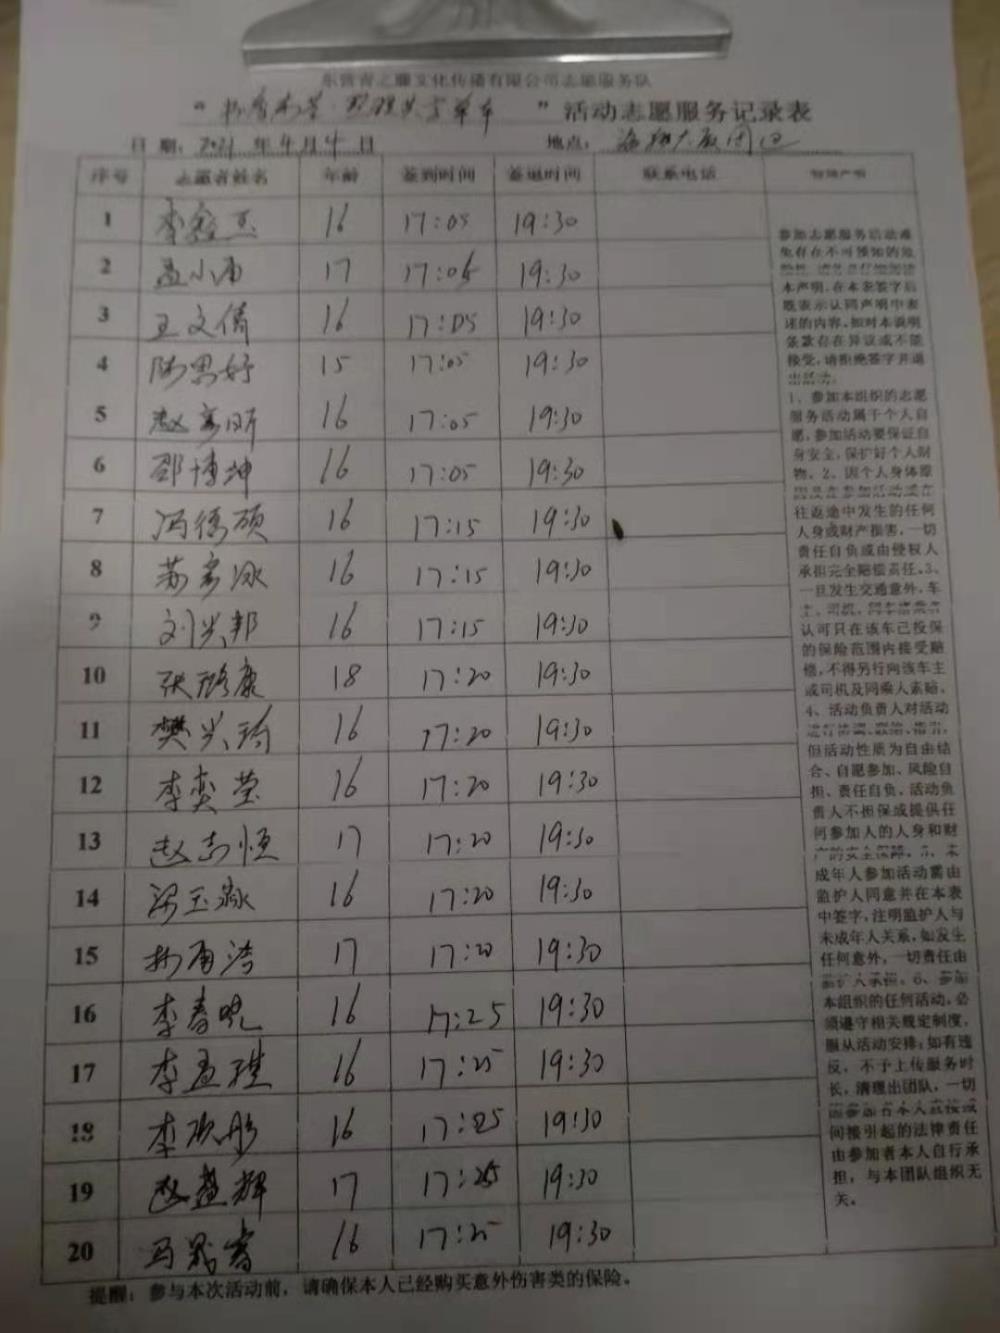 东营青之雕文化传播有限公司志愿服务队
“ ” 活动志愿服务记录表
日期: 2021 年 4 月 4 日 地点: 大厦周边
序号 志愿者姓名 年龄 签到时间 签退时间 联系电话 特别声明
1 李 玉 16 17:05 19:30
2 孟小雨 17 17:05 19:30
3 王文倩 16 17:05 19:30
4 陈思妤 15 17:05 19:30
5 赵彦昕 16 17:05 19:30
6 邵博坤 16 17:05 19:30
7 冯德硕 16 17:15 19:30
8 苏彦冰 16 17:15 19:30
9 刘兴邦 16 17:15 19:30
10 张 康 18 17:20 19:30
11 樊兴 16 17:20 19:30
12 李奕莹 16 17:20 19:30
13 赵志恒 17 17:20 19:30
14 梁玉 16 17:20 19:30
15 雨 17 17:20 19:30
16 李春晓 16 17:25 19:30
17 李孟 16 17:25 19:30
18 李欣彤 16 17:25 19:30
19 赵 辉 17 17:25 19:30
20 马 睿 16 17:25 19:30
参加志愿服务活动难
免存在不可预知的危
本声明,在本表签字后
既表示认同声明中表
述的内容。如对本说明
条款存在异议或不能
接受,请拒绝签字并退
出活动。
1、参加本组织的志愿
服务活动属于个人自
愿,参加活动要保证自
身安全,保护好个人财
物。2、因个人身体原
往返途中发生的任何
人身或财产损害,一切
责任自负或由侵权人
承担完全赔偿责任。3、
一旦发生交通意外,车
认可只在该车已投保
的保险范围内接受赔
偿,不得另行向该车主
或司机及同乘人索赔。
4、活动负责人对活动
但活动性质为自由结
合、自愿参加、风险自
担、责任自负,活动负
责人不担保或提供任
何参加人的人身和财
产的安全保障。5、未
成年人参加活动需由
监护人同意并在本表
中签字,注明监护人与
未成年人关系,如发生
任何意外,一切责任由
监护人承担。6、参加
本组织的任何活动,必
须遵守相关规定制度,
服从活动安排;如有违
反,不予上传服务时
长,清理出团队,一切
间接引起的法律责任
由参加者本人自行承
担,与本团队组织无
关。
提醒:参与本次活动前,请确保本人已经购买意外伤害类的保险。